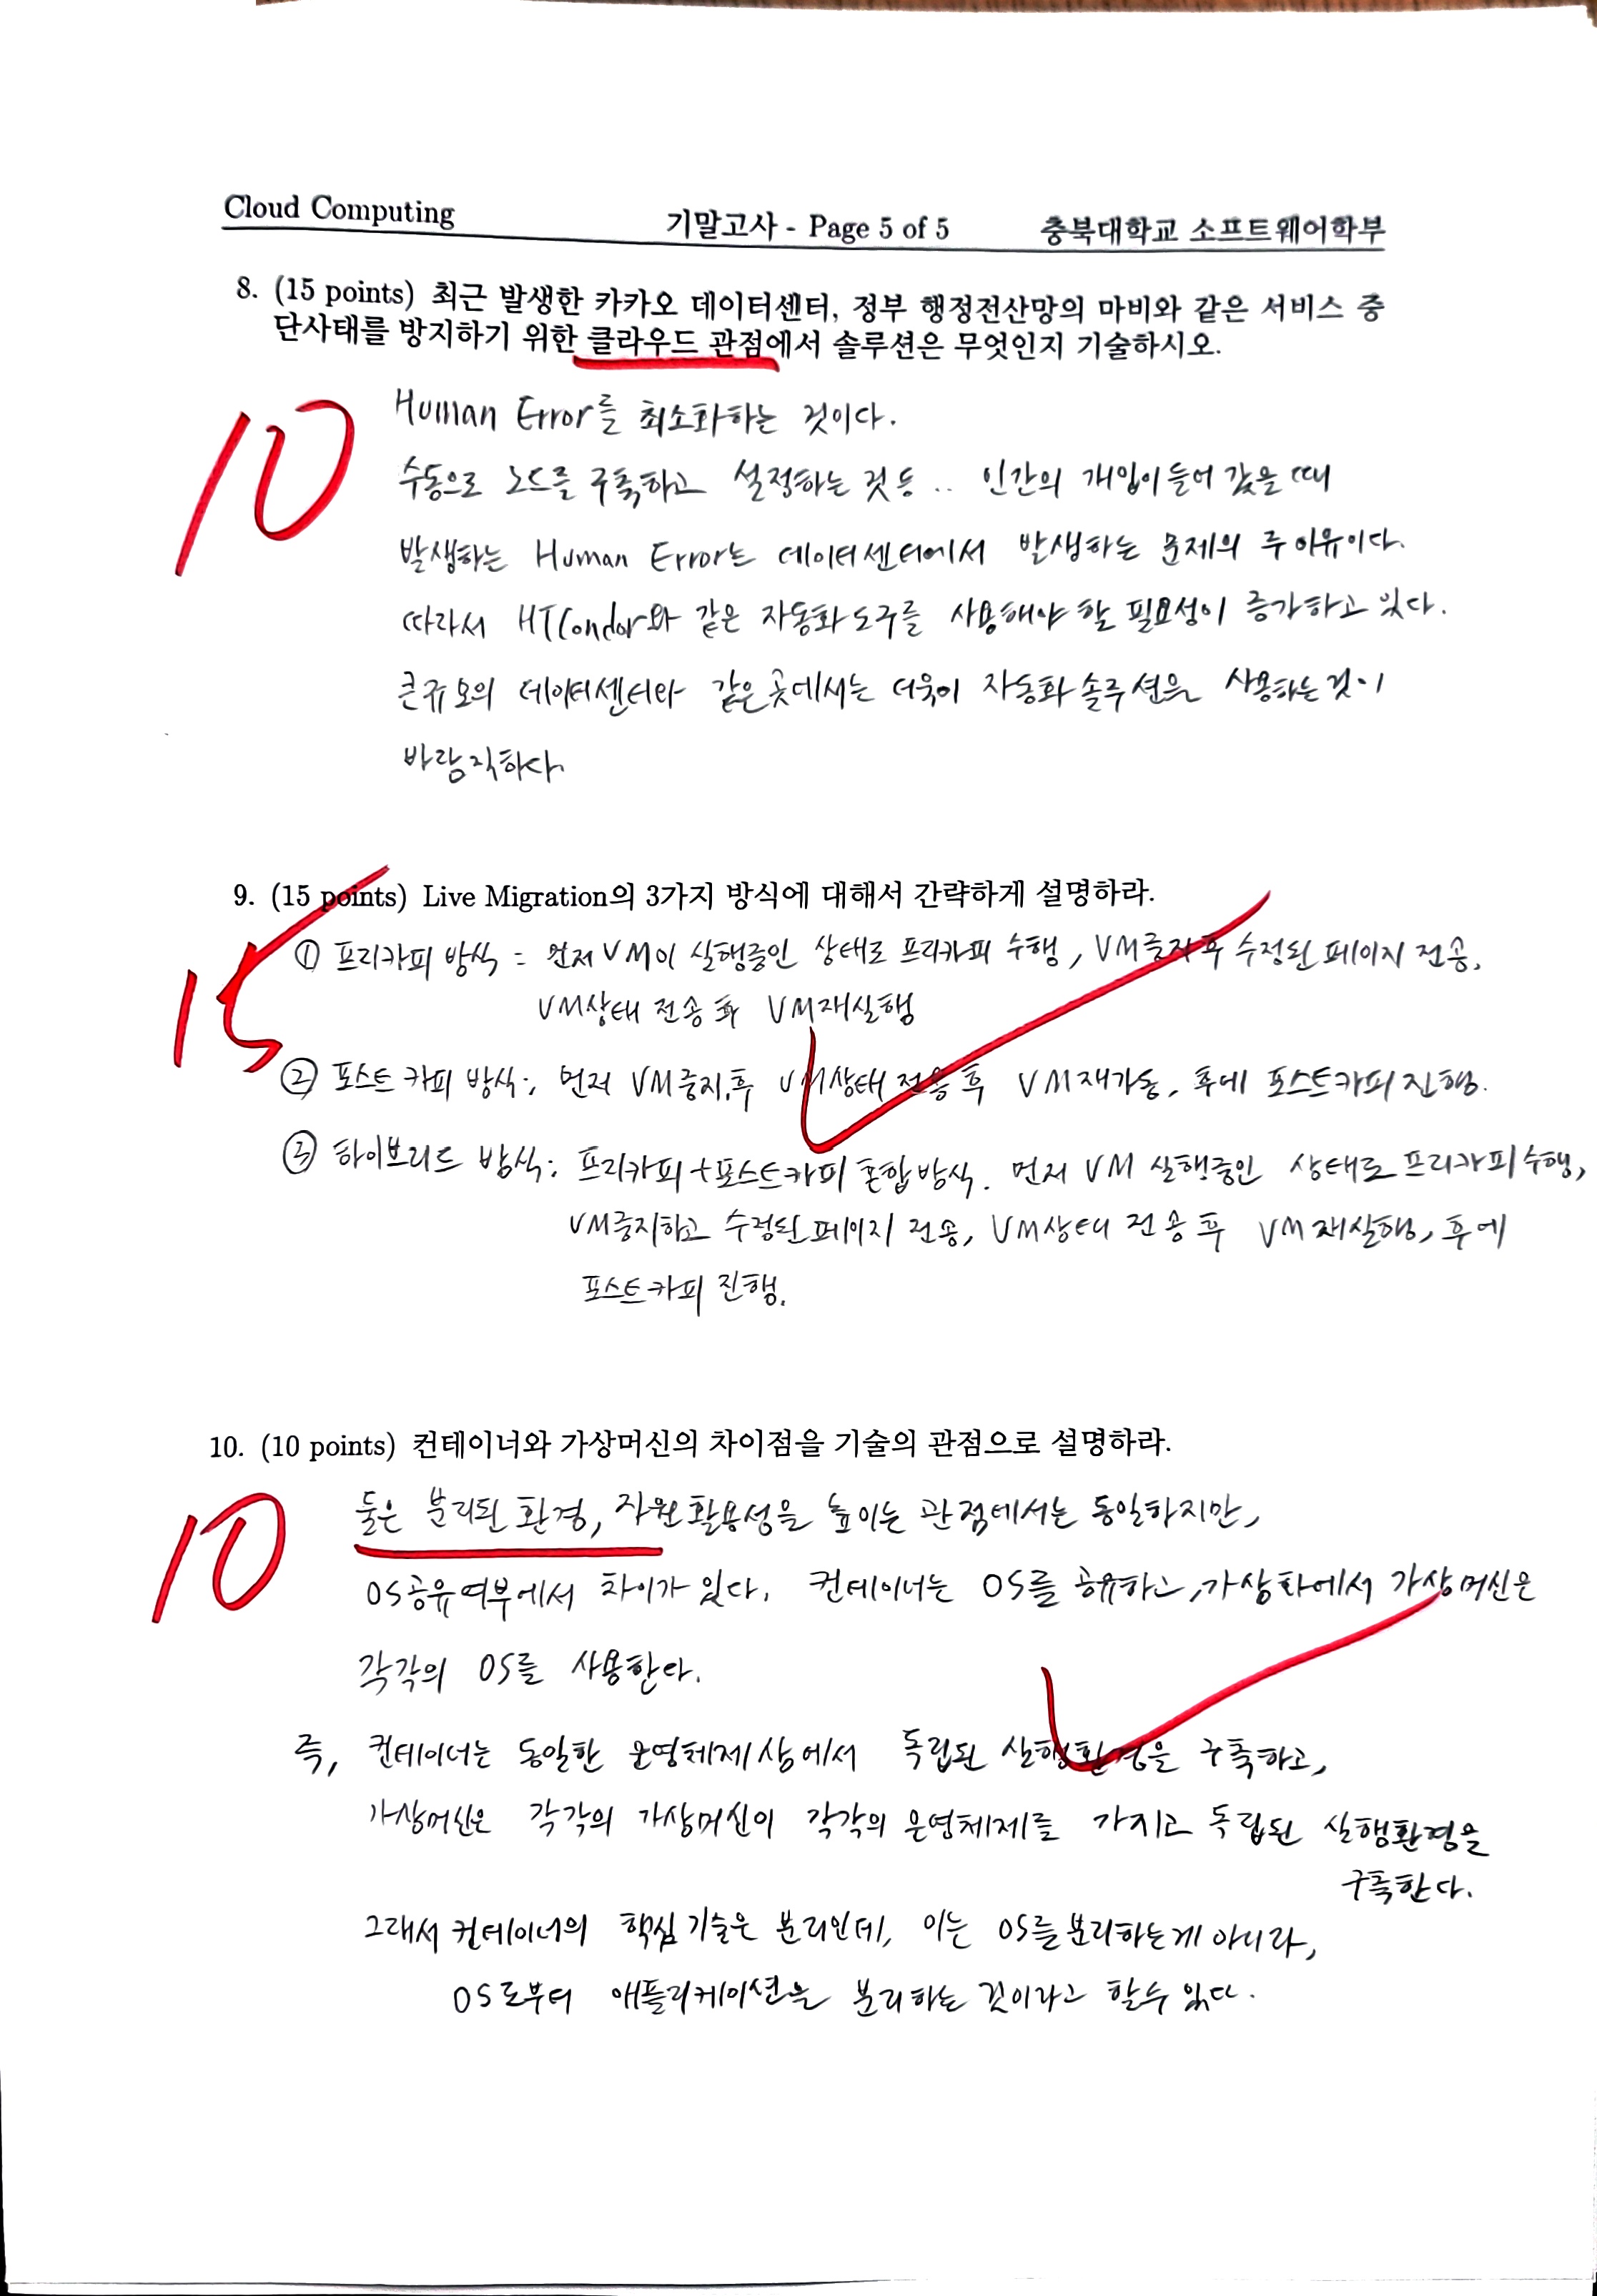 Cloud Computing 기말고사 - Page 5 of 5 충북대학교 소프트웨어학부
8. (15 points) 최근 발생한 카카오 데이터센터, 정부 행정전산망의 마비와 같은 서비스 중
단사태를 방지하기 위한 클라우드 관점에서 솔루션은 무엇인지 기술하시오.
10
Human Error를 최소화하는 것이다.
수동으로 노드를 구축하고 설정하는 것 등 .. 인간의 개입이 들어 갔을 때
발생하는 Human Error는 데이터센터에서 발생하는 문제의 주 이유이다.
따라서 HTCondor와 같은 자동화 도구를 사용해야 할 필요성이 증가하고 있다.
큰규모의 데이터센터와 같은 곳에서는 더욱이 자동화 솔루션을 사용하는 것이
바람직하다.
9. (15 points) Live Migration의 3가지 방식에 대해서 간략하게 설명하라.
15
① 프리카피 방식 = 먼저 VM이 실행중인 상태로 프리카피 수행, VM중지 후 수정된 페이지 전송,
VM상태 전송 후 VM재실행
② 포스트 카피 방식: 먼저 VM중지 후 VM상태 전송 후 VM재가동, 후에 포스트카피 진행.
③ 하이브리드 방식: 프리카피+포스트카피 혼합방식. 먼저 VM 실행중인 상태로 프리카피 수행,
VM중지하고 수정된 페이지 전송, VM상태 전송 후 VM 재실행, 후에
포스트카피 진행.
10. (10 points) 컨테이너와 가상머신의 차이점을 기술의 관점으로 설명하라.
10
둘은 분리된 환경, 자원 활용성을 높이는 관점에서는 동일하지만,
OS공유 여부에서 차이가 있다. 컨테이너는 OS를 공유하고, 가상화에서 가상머신은
각각의 OS를 사용한다.
즉, 컨테이너는 동일한 운영체제 상에서 독립된 실행환경을 구축하고,
가상머신은 각각의 가상머신이 각각의 운영체제를 가지고 독립된 실행환경을
구축한다.
그래서 컨테이너의 핵심 기술은 분리인데, 이는 OS를 분리하는게 아니라,
OS로부터 애플리케이션을 분리하는 것이라고 할수 있다.